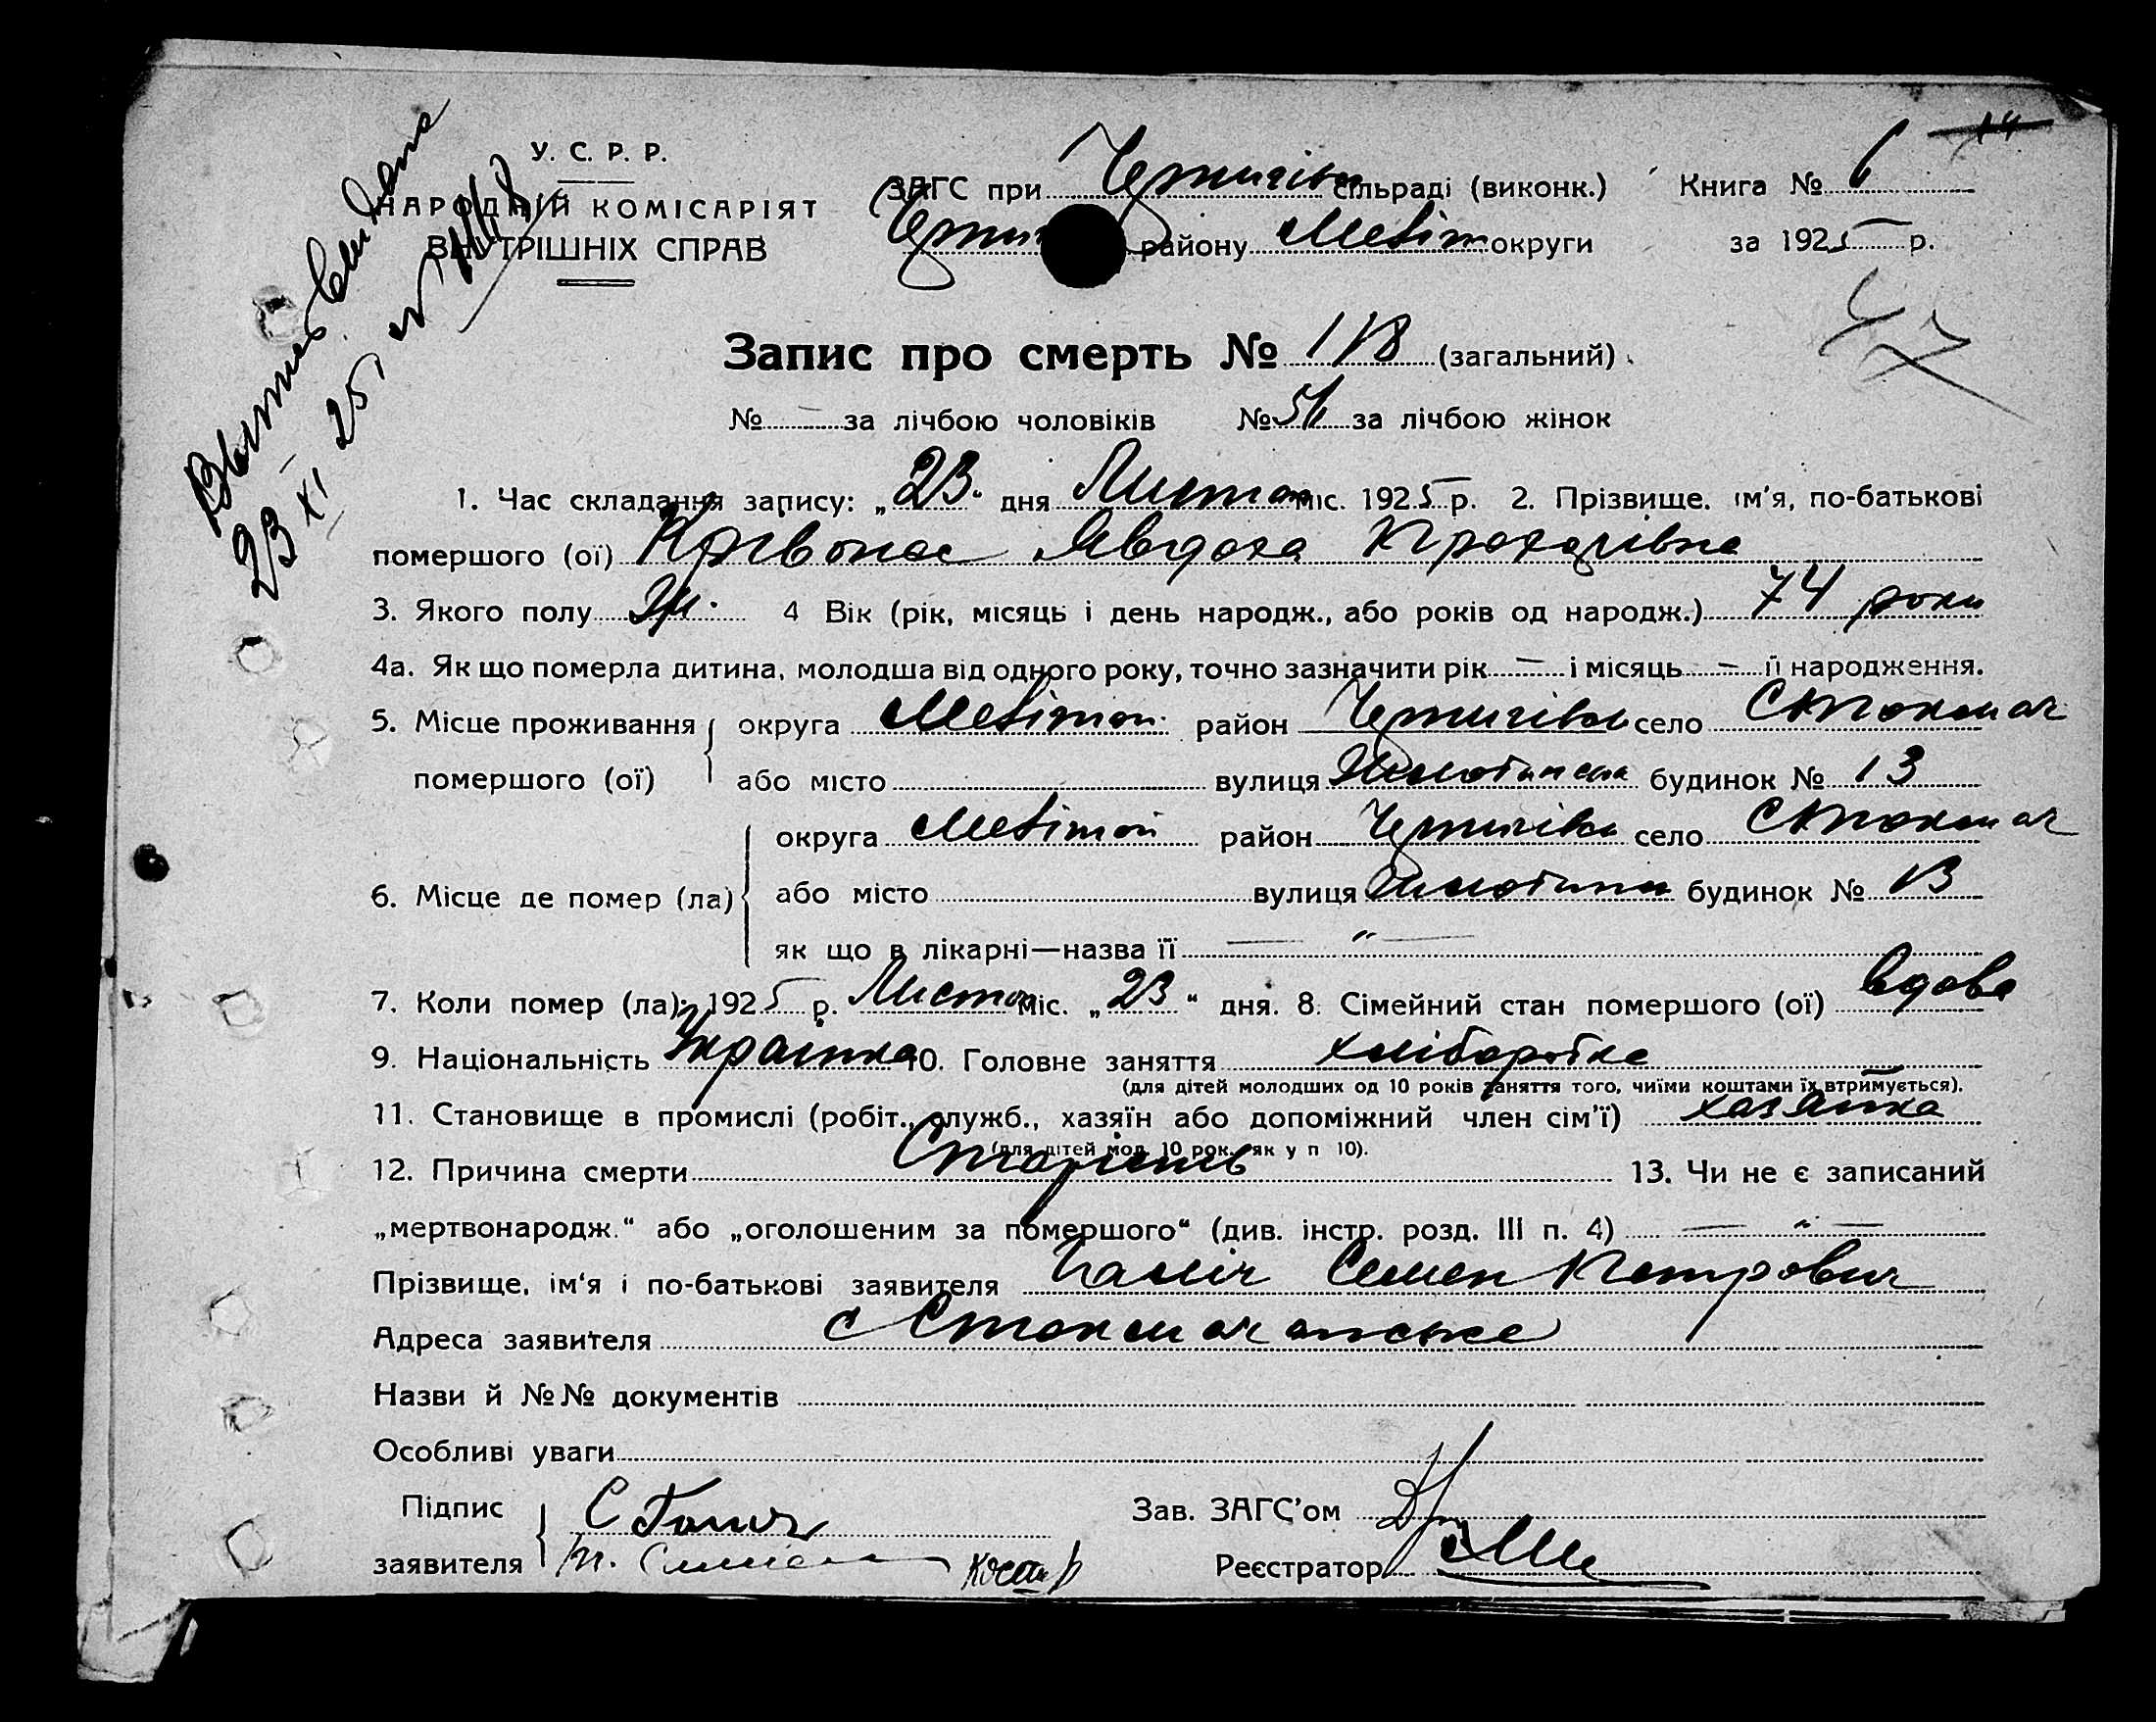 У. С. Р. Р.
НАРОДНІЙ КОМІСАРІЯТ
ВНУТРІШНІХ СПРАВ
ЗАГС при Чернигівс сільраді (виконк.) Книга № 6
району Меліт округи за 1925 р.
47
Запис про смерть № 118 (загальний)
№ — за лічбою чоловіків № 56 за лічбою жінок
23 XI 25
1. Час складання запису: „23" дня Листоп міс. 1925 р. 2. Прізвище, ім'я, по-батькові
помершого (ої) Кривонос Явдоха Прохорівна
3. Якого полу ж. 4 Вік (рік, місяць і день народж., або років од народж.) 74 роки
4а. Як що померла дитина, молодша від одного року, точно зазначити рік — і місяць — її народження.
5. Місце проживання округа Мелітоп. район Чернигівс село
помершого (ої) або місто вулиця будинок № 13
округа Мелітоп район Чернигівс село
6. Місце де помер (ла) або місто вулиця будинок № 13
як що в лікарні—назва її — „ —
7. Коли помер (ла): 1925 р. Листоп міс. „23" дня. 8. Сімейний стан помершого (ої) вдова
9. Національність Українка 10. Головне заняття хліборобка
(для дітей молодших од 10 років заняття того, чиїми коштами їх втримується).
11. Становище в промислі (робіт., служб., хазяїн або допоміжний член сім'ї) хазяйка
(для дітей мол. 10 рок. як у п 10).
12. Причина смерти Старість 13. Чи не є записаний
„мертвонародж." або „оголошеним за помершого" (див. інстр. розд. III п. 4) — „ —
Прізвище, ім'я і по-батькові заявителя Семен Петрович
Адреса заявителя с
Назви й №№ документів
Особливі уваги
Підпис Зав. ЗАГС'ом
заявителя Реєстратор